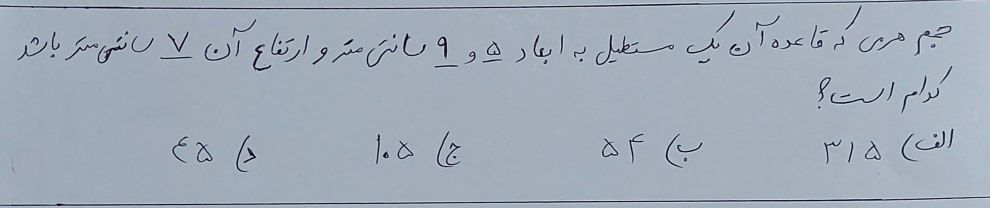 حجم هرمی که قاعده آن یک مستطیل به ابعاد ۵ و ۹ سانتی متر و ارتفاع آن ۷ سانتی متر باشد
کدام است؟
الف) ۳۱۵ ب) ۵۴ ج) ۱۰۵ د) ۴۵